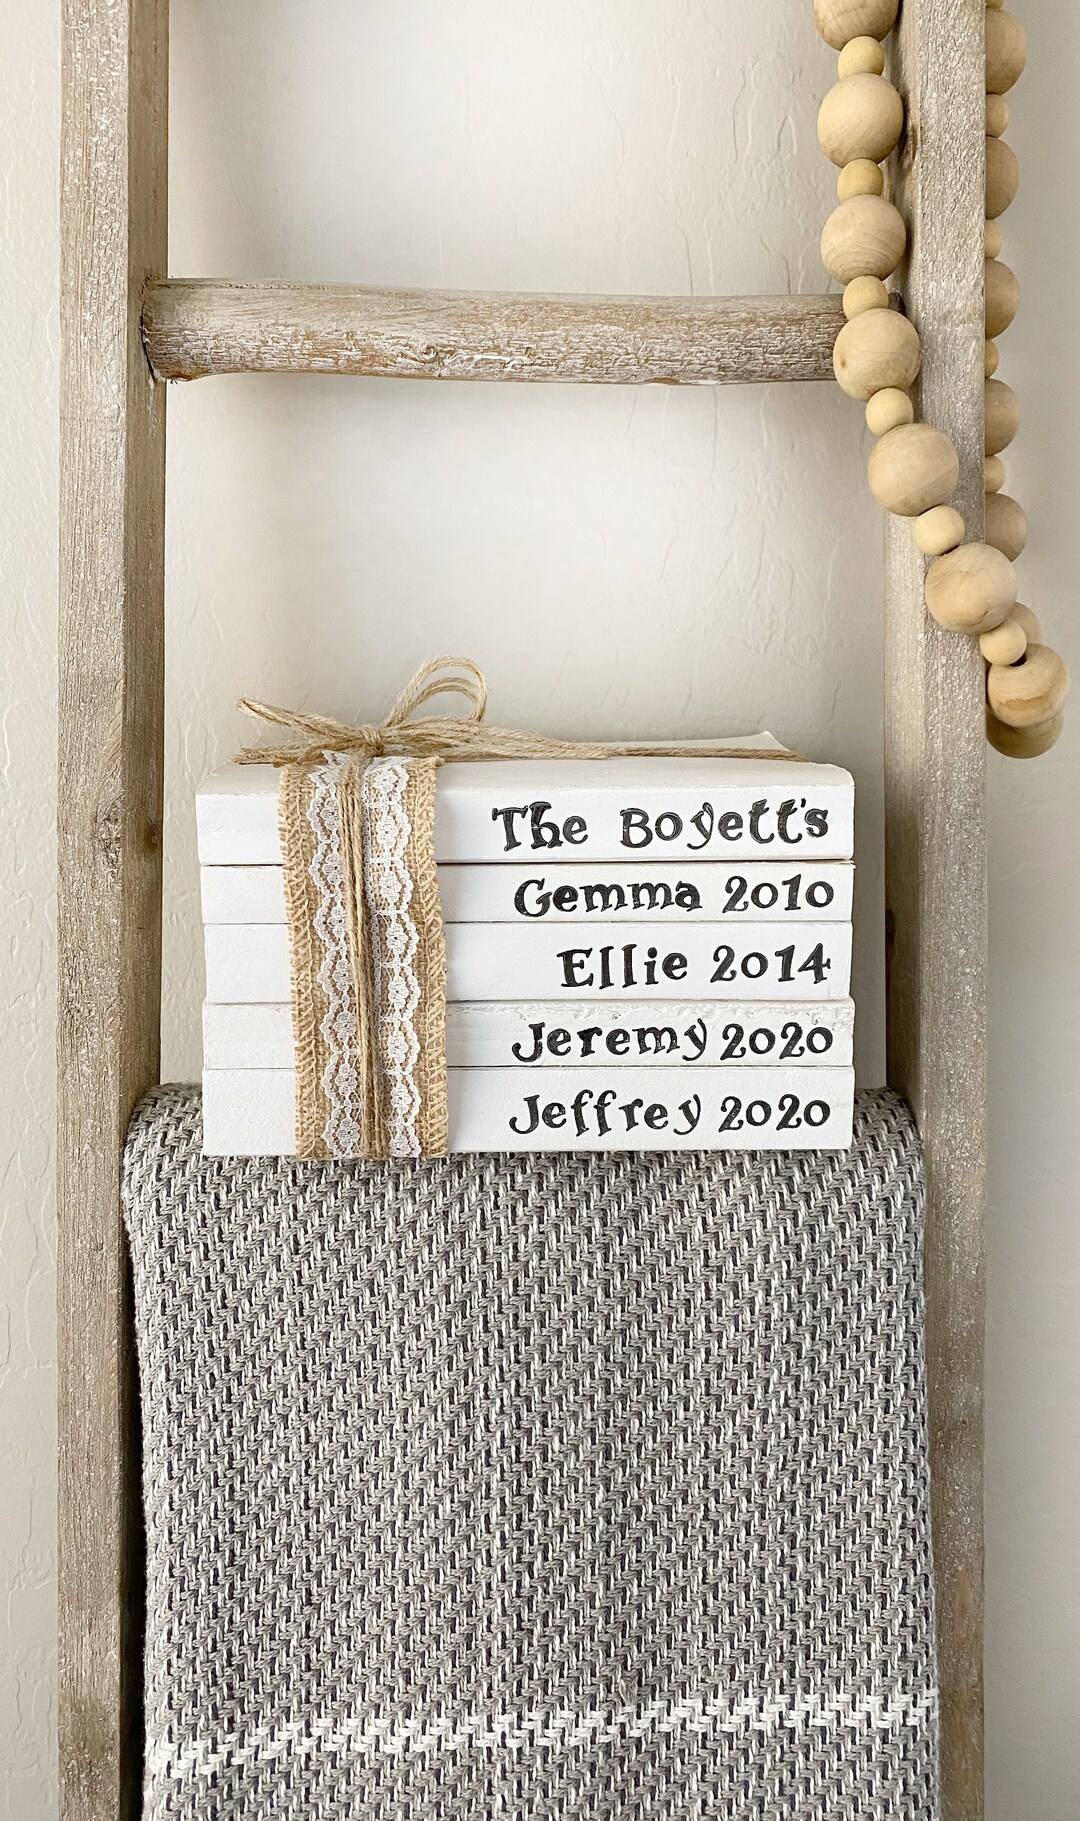 The Boyett's
Gemma 2010
Ellie 2014
Jeremy 2020
Jeffrey 2020